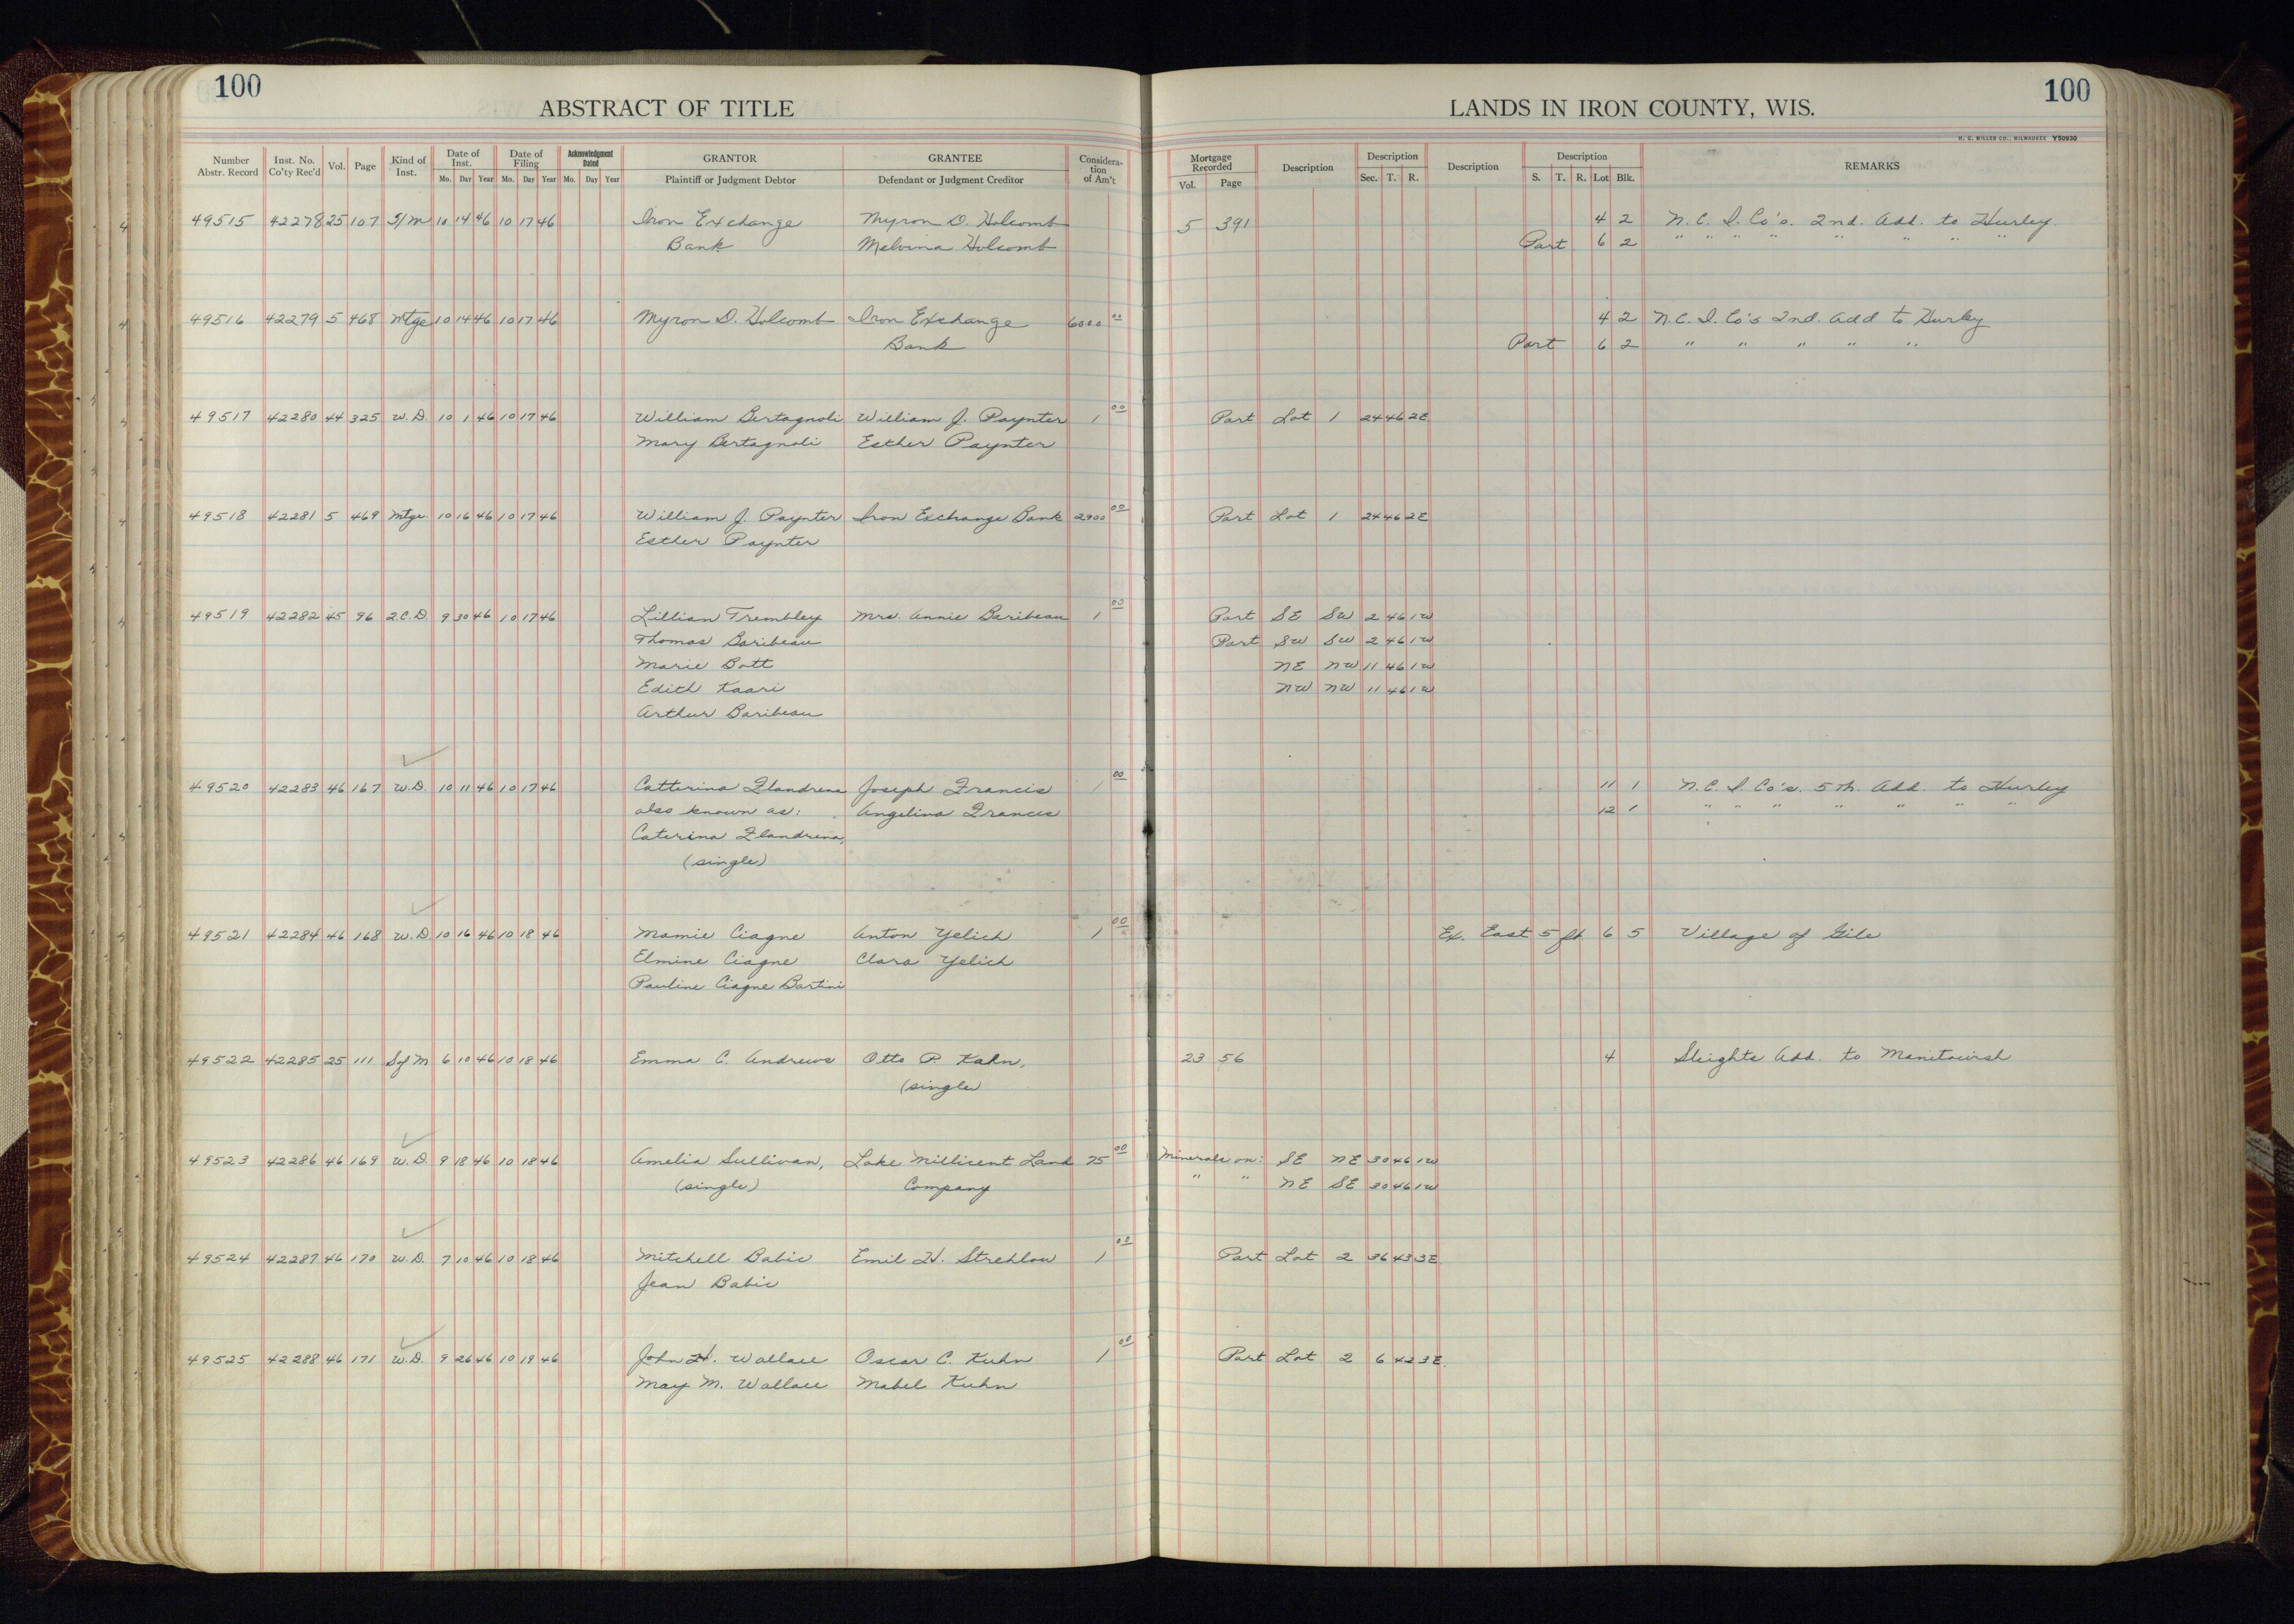 100
ABSTRACT OF TITLE
LANDS IN IRON COUNTY, WIS.
100
H. C. MILLER CO., MILWAUKEE Y50930
Number Abstr. Record | Inst. No. Co'ty Rec'd | Vol. | Page | Kind of Inst. | Date of Inst. Mo. Day Year | Date of Filing Mo. Day Year | Acknowledgment Dated Mo. Day Year | GRANTOR Plaintiff or Judgment Debtor | GRANTEE Defendant or Judgment Creditor | Considera-tion of Am't | Mortgage Recorded Vol. Page | Description | Description Sec. T. R. | Description | Description S. T. R. Lot Blk. | REMARKS
49515 42278 25 107 S/M 10 14 46 10 17 46 Iron Exchange Myron D. Holcomb 5 391 4 2 N.C.I. Co's. 2nd. Add. to Hurley
Bank Melvina Holcomb Part 6 2 " " " " " " " "
49516 42279 5 468 Mtge 10 14 46 10 17 46 Myron D. Holcomb Iron Exchange 6000 00 4 2 N.C.I. Co's 2nd. Add to Hurley
Bank Part 6 2 " " " " "
49517 42280 44 325 W.D. 10 1 46 10 17 46 William Bertagnoli William J. Paynter 1 00 Part Lot 1 24 46 2E
Mary Bertagnoli Esther Paynter
49518 42281 5 469 Mtge. 10 16 46 10 17 46 William J. Paynter Iron Exchange Bank 2900 00 Part Lot 1 24 46 2E
Esther Paynter
49519 42282 45 96 Q.C.D. 9 30 46 10 17 46 Lillian Trembley Mrs. Annie Baribeau 1 00 Part SE SW 2 46 1W
Thomas Baribeau Part SW SW 2 46 1W
Marie Bott NE NW 11 46 1W
Edith Kaari NW NW 11 46 1W
Arthur Baribeau
49520 42283 46 167 W.D. 10 11 46 10 17 46 Catterina Flandrena Joseph Francis 1 00 11 1 N.C.I. Co's. 5th. Add. to Hurley
also known as: Angelina Francis 12 1 " " " " " " "
Caterina Flandrena,
(single)
49521 42284 46 168 W.D. 10 16 46 10 18 46 Mamie Ciagne Anton Yelich 1 00 Ex. East 5 ft 6 5 Village of Gile
Elmine Ciagne Clara Yelich
Pauline Ciagne Bartini
49522 42285 25 111 S of M 6 10 46 10 18 46 Emma C. Andrews Otto P. Kahn, 23 56 4 Sleights Add. to Manitowish
(single)
49523 42286 46 169 W.D. 9 18 46 10 18 46 Amelia Sullivan, Lake Millicent Land 75 00 Minerals on: SE NE 30 46 1W
(single) Company " " NE SE 30 46 1W
49524 42287 46 170 W.D. 7 10 46 10 18 46 Mitchell Babic Emil H. Strehlow 1 00 Part Lot 2 36 43 3E
Jean Babic
49525 42288 46 171 W.D. 9 26 46 10 19 46 John H. Wallace Oscar C. Kuhn 1 00 Part Lot 2 6 42 3E.
May M. Wallace Mabel Kuhn